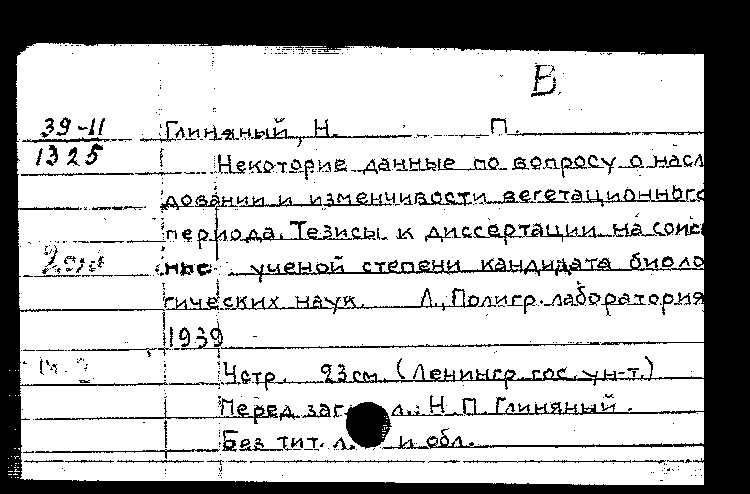 В
39-11
1325
Глиняный, Н. П.
Некоторие данные по вопросу о насл
довании и изменчивости вегетационного
периода. Тезисы к диссертации на соис
ние ученой степени кандидата биоло
гических наук. Л., Полигр. лаборатория
1939
4стр. 23см. (Ленингр. гос. ун-т.)
Перед заг. л.: Н. П. Глиняный.
Без тит. л. и обл.